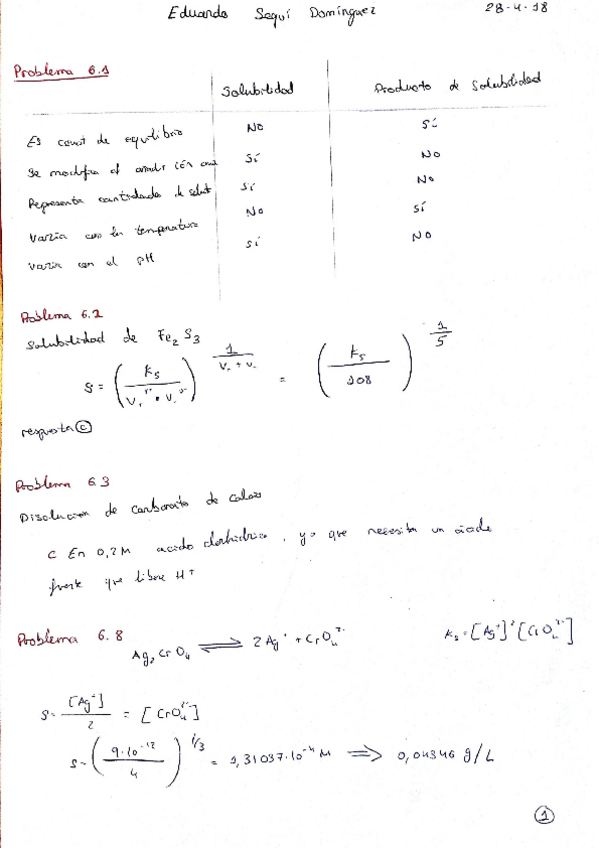 Eduardo Seguí Domínguez 28-4-18
Problema 6.1
Solubilidad Producto de Solubilidad
Es const de equilibrio NO SÍ
Se modifica al añadir ión com SÍ NO
Representa cantidades de solut SÍ NO
Varía con la temperatura NO SÍ
varía con el pH SÍ NO
Problema 6.2
Solubilidad de Fe₂S₃
S = (Ks / V₊^V₊ · V₋^V₋)^(1/(V₊+V₋)) = (Ks/108)^(1/5)
respuesta c
Problema 6.3
Disolución de carbonato de calcio
C En 0,2 M acido clorhidrico, ya que necesita un ácido
fuerte que libere H⁺
Problema 6.8
Ag₂CrO₄ ⇌ 2Ag⁺ + CrO₄²⁻ Ks = [Ag⁺]²[CrO₄²⁻]
S = [Ag⁺]/2 = [CrO₄²⁻]
S = (9·10⁻¹²/4)^(1/3) = 1,31037·10⁻⁴ M ⟹ 0,04346 g/L
1